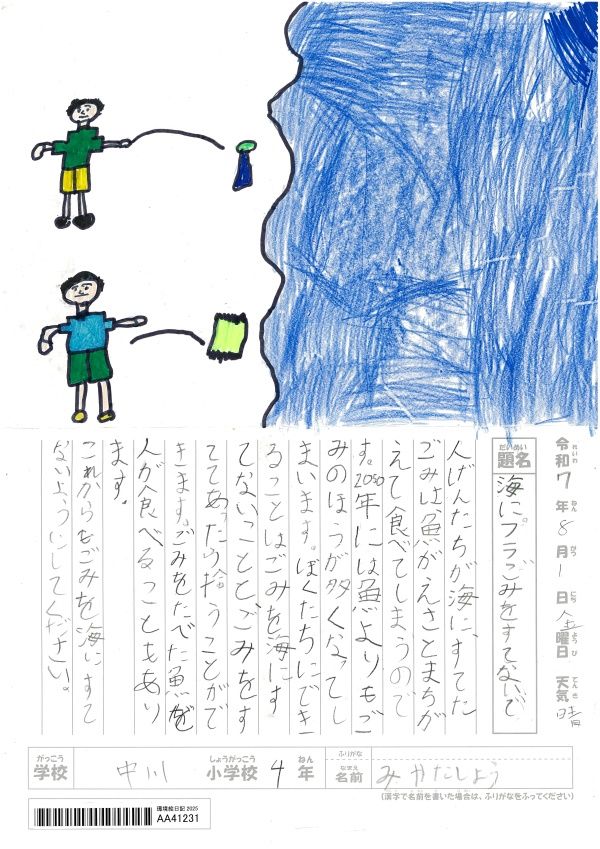 令和7年8月1日金曜日 天気 晴
題名 海にプラごみをすてないで
人げんたちが海に、すてた
ごみは、魚がえさとまちが
えて食べてしまうので
す。2050年には魚よりもご
みのほうが多くなってし
まいます。ぼくたちにでき
ることはごみを海にす
てないことと、ごみをす
ててあったら拾うことがで
きます。ごみをたべた魚を
人が食べることもあり
ます。
これからもごみを海にすて
ないようにしてください。
学校 中川 小学校 4年 名前 みかたしょう
(漢字で名前を書いた場合は、ふりがなをふってください)
環境絵日記 2025
AA41231